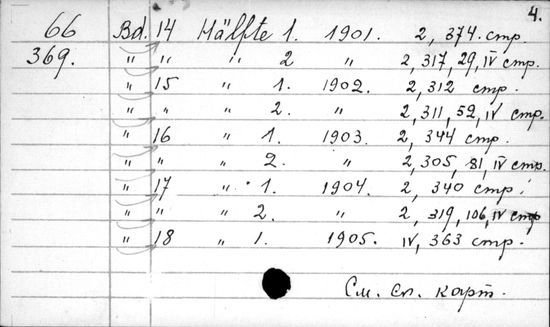 4.
66 Bd. 14 Hälfte 1. 1901. 2, 374 стр.
369. " " " 2 " 2, 317, 29, IV стр.
" 15 " 1. 1902. 2, 312 стр.
" " " 2. " 2, 311, 52, IV стр.
" 16 " 1. 1903. 2, 344 стр.
" " " 2. " 2, 305, 81, IV стр.
" 17 " 1. 1904. 2, 340 стр.
" " " 2. " 2, 319, 106, IV стр
" 18 " 1. 1905. IV, 363 стр.
См. сл. карт.